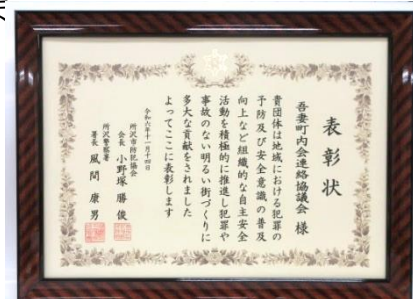 表彰状
吾妻町内会連絡協議会 様
貴団体は地域における犯罪の
予防及び安全意識の普及
向上など組織的な自主安全
活動を積極的に推進し犯罪や
事故のない明るい街づくりに
多大な貢献をされました
よってここに表彰します
令和六年十一月十四日
所沢市防犯協会
会長 小野塚 勝俊
所沢警察署
署長 風間 康男